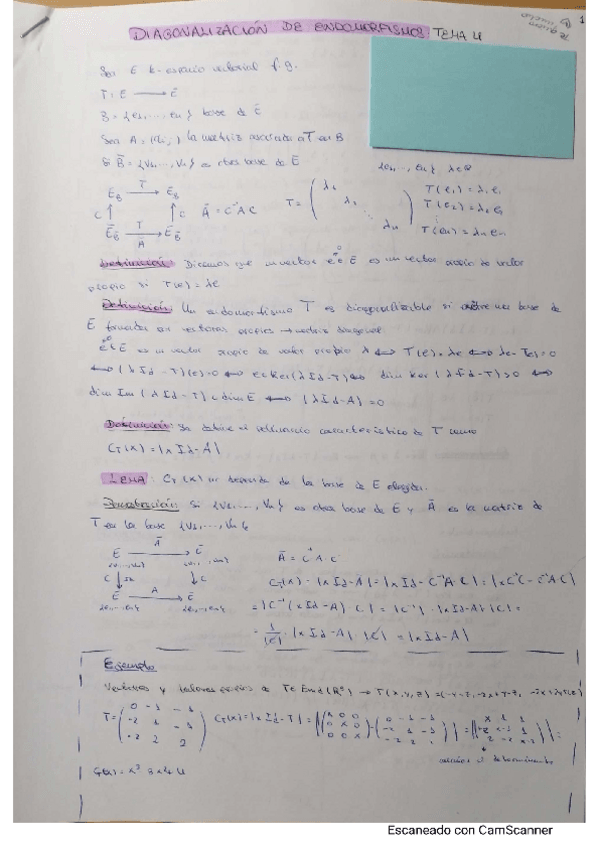 DIAGONALIZACIÓN DE ENDOMORFISMOS TEMA 4
1
Sea E k-espacio vectorial f.g.
T: E → E
B = {e1, ..., en} base de E
Sea A = (aij) la matriz asociada a T en B
Si B̄ = {v1, ..., vn} es otra base de E
Ā = C⁻¹ A C
T(e1) = λ1 e1
T(e2) = λ2 e2
T(en) = λn en
Definición: Decimos que un vector e ∈ E es un vector propio de valor
propio si T(e) = λe
Definición: Un endomorfismo T es diagonalizable si existe una base de
E formada por vectores propios → matriz diagonal
e ∈ E es un vector propio de valor propio λ ⟺ T(e) = λe ⟺ λe - T(e) = 0
⟺ (λId - T)(e) = 0 ⟺ e ∈ Ker(λId - T) ⟺ dim Ker(λId - T) > 0 ⟺
dim Im(λId - T) < dim E ⟺ |λId - A| = 0
Definición: Se define el polinomio característico de T como
CT(x) = |xId - A|
LEMA: CT(x) no depende de la base de E elegida.
Demostración: Si {v1, ..., vn} es otra base de E y Ā es la matriz de
T en la base {v1, ..., vn}
Ā = C⁻¹ A C
CT(x) = |xId - Ā| = |xId - C⁻¹AC| = |xC⁻¹C - C⁻¹AC|
= |C⁻¹(xId - A) C| = |C⁻¹| · |xId - A| |C| =
= 1/|C| · |xId - A| |C| = |xId - A|
Ejemplo
Vectores y valores propios de T ∈ End(R³)
CT(x) = |xId - T| =
calculamos el determinante
Escaneado con CamScanner